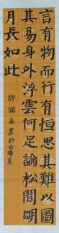 言有物而行有恒思其難以圖
其易身外浮雲何足論松間明
月長如此